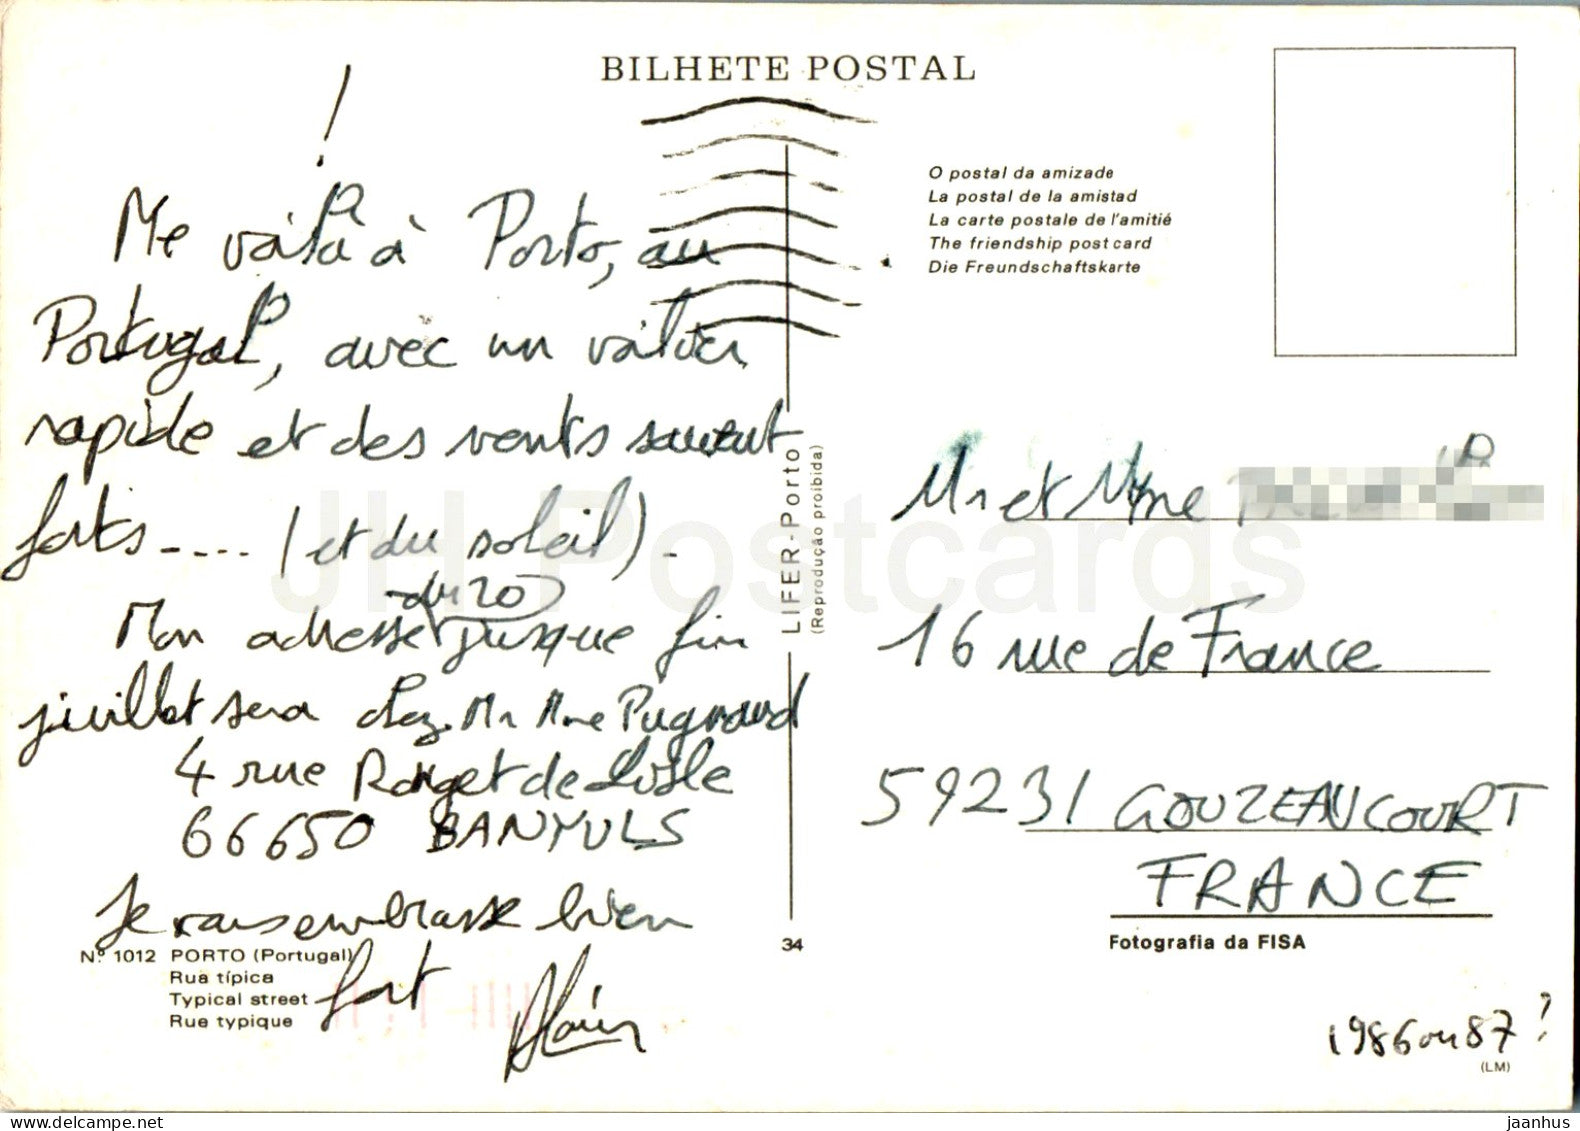 BILHETE POSTAL
!
Me voilà à Porto, au
Portugal, avec un voilier
rapide et des vents suivant
forts---- (et du soleil)-
du 20
Mon adresse jusque fin
juillet sera chez Mr Mme Pugnaud
4 rue Rouget de Lisle
66650 BANYULS
Je vous embrasse bien
fort
Alain
Nº 1012 PORTO (Portugal)
Rua típica
Typical street
Rue typique
LIFER - Porto
(Reprodução proibida)
34
O postal da amizade
La postal de la amistad
La carte postale de l'amitié
The friendship post card
Die Freundschaftskarte
Mr et Mme
16 rue de France
59231 GOUZEAUCOURT
FRANCE
Fotografia da FISA
1986 ou 87?
(LM)
JH Postcards
www.delcampe.net
jaanhus